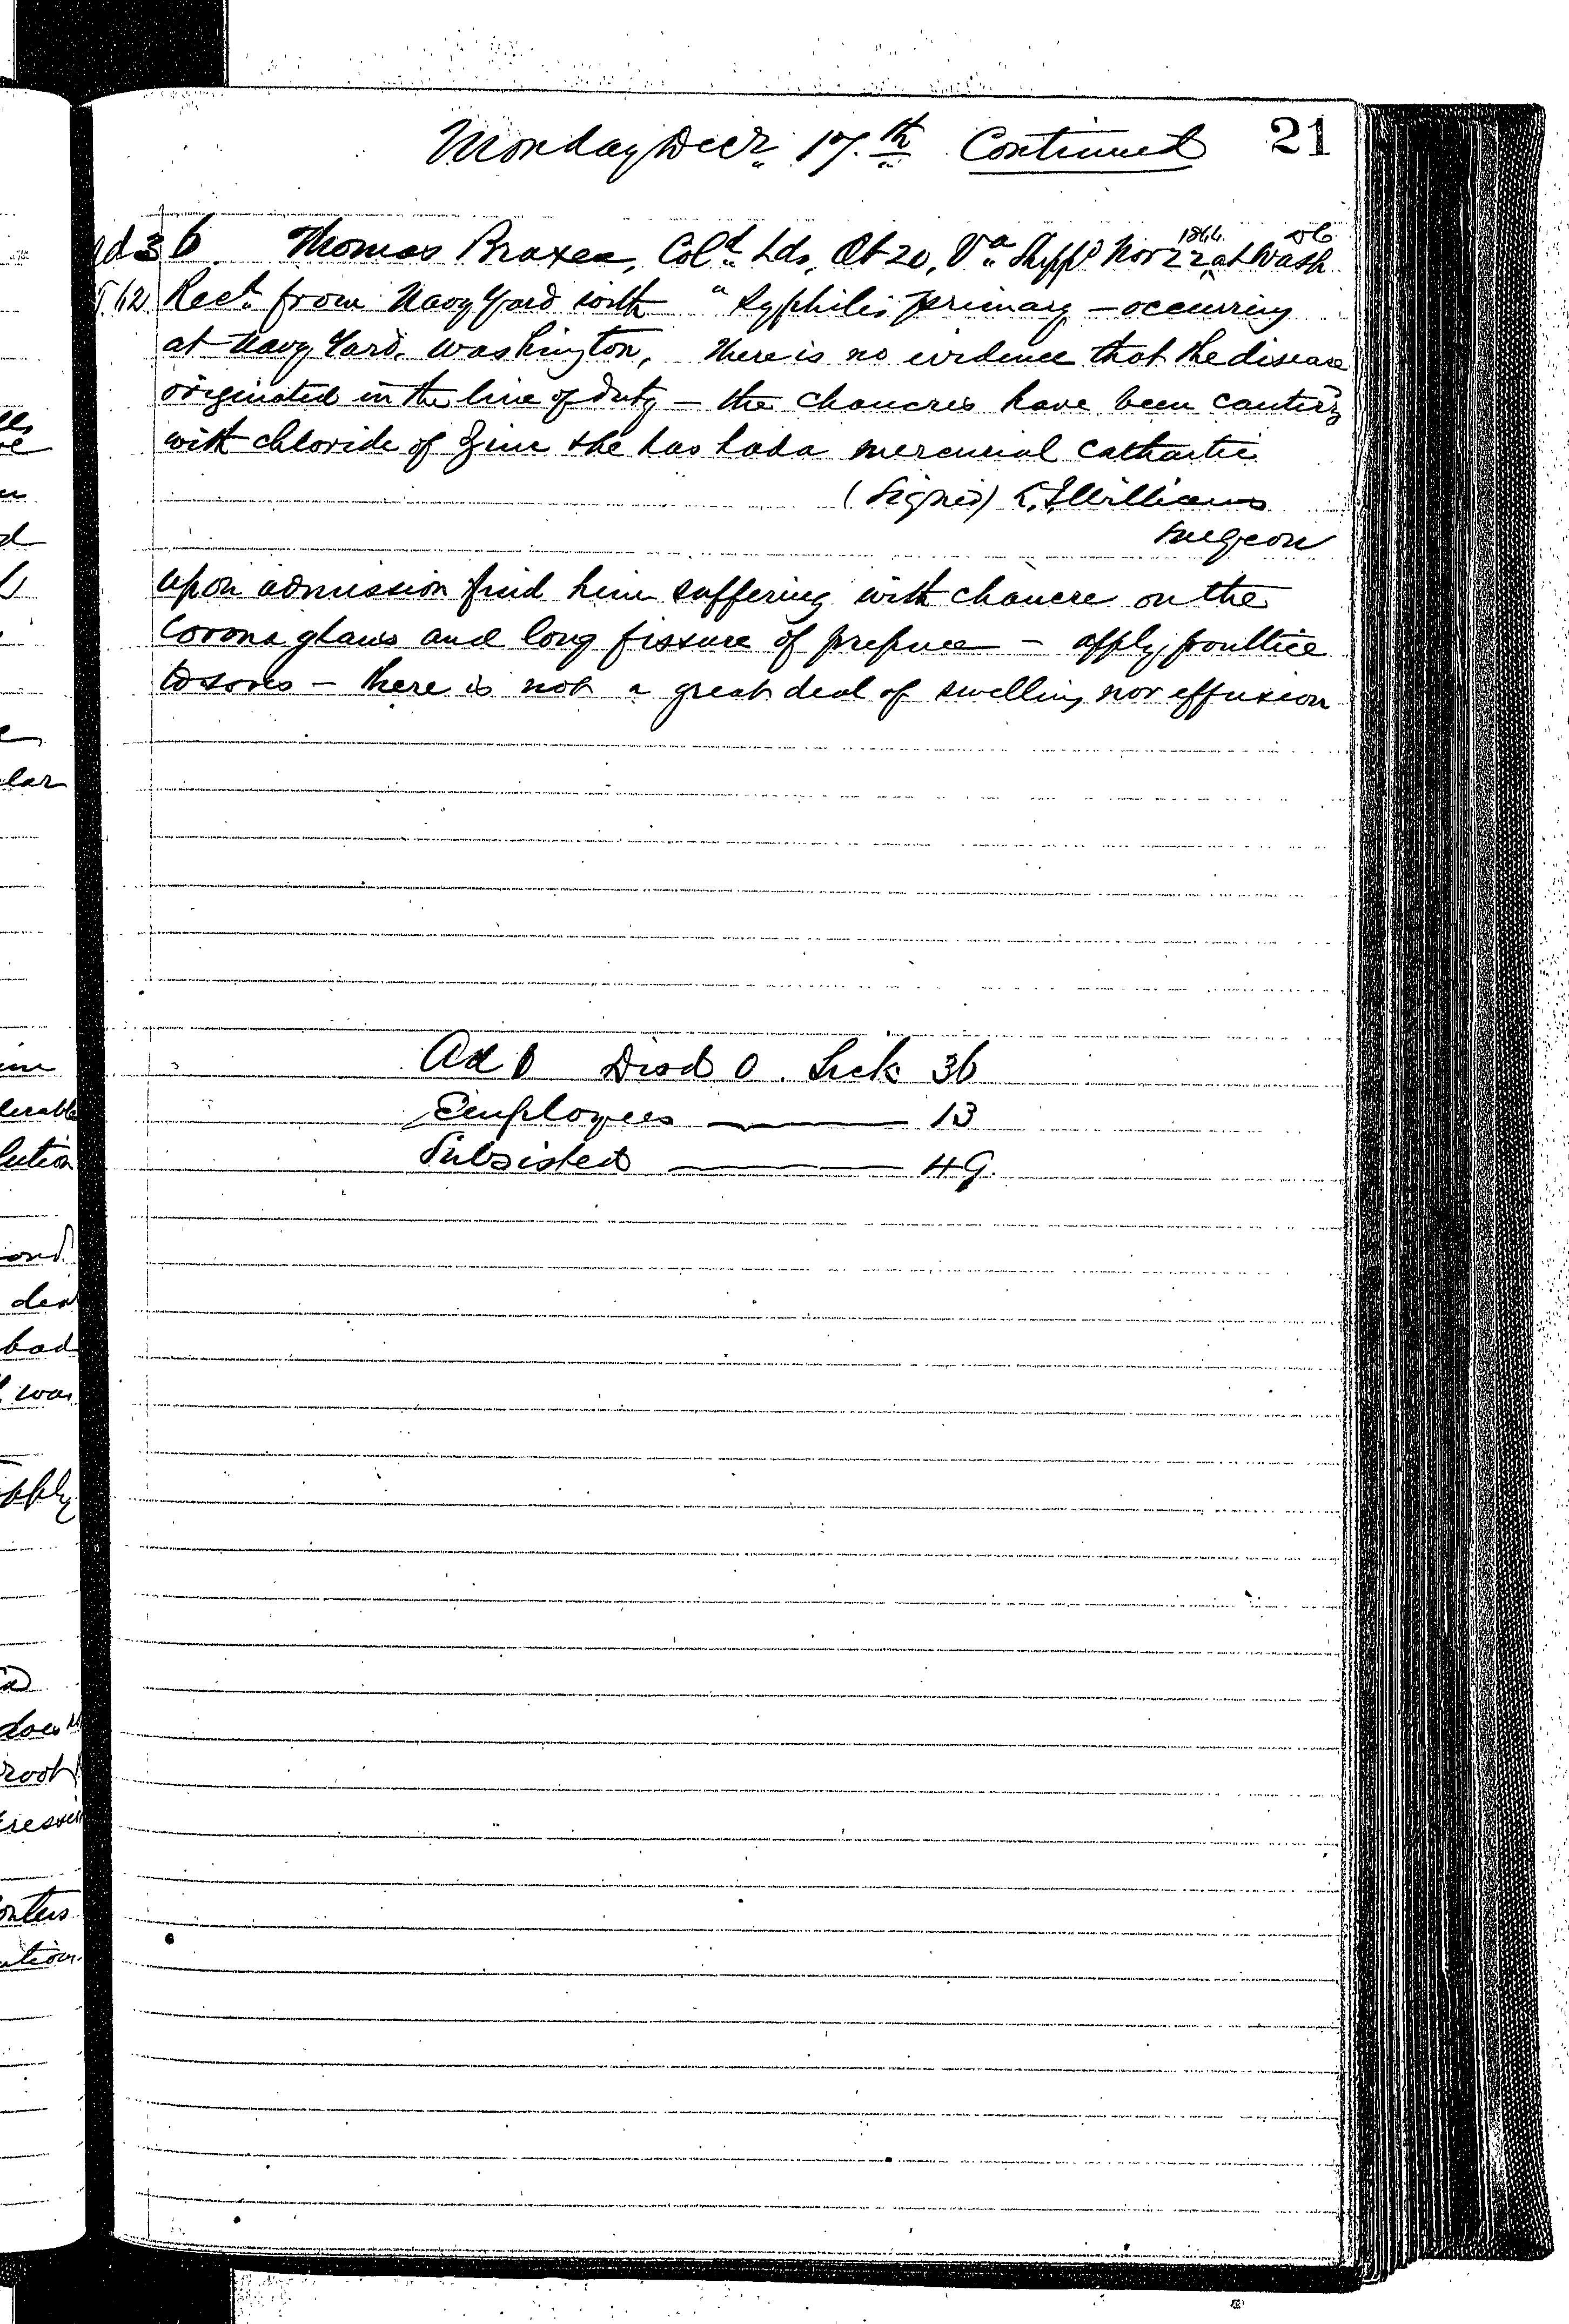 Monday Decr 17.th Continued 21
ad 36. Thomas Braxea, Cold Lds, Æt 20, Va Shippd Nov 22 1866. at Wash DC
T. 12 Recd from Navy Yard with "Syphilis primary - occurring
at Navy Yard, Washington, there is no evidence that the disease
originated in the line of duty - the chancres have been cauterizd
with chloride of Zinc & he has had a mercurial cathartic
(Signed) Williams
Surgeon
upon admission find him suffering with chancre on the
Corona glans and long fissure of prepuce - apply poultice
to sores - there is not a great deal of swelling nor effusion
Ad 6 Disd 0. Sick 36
Employees 13
Subsisted 49.